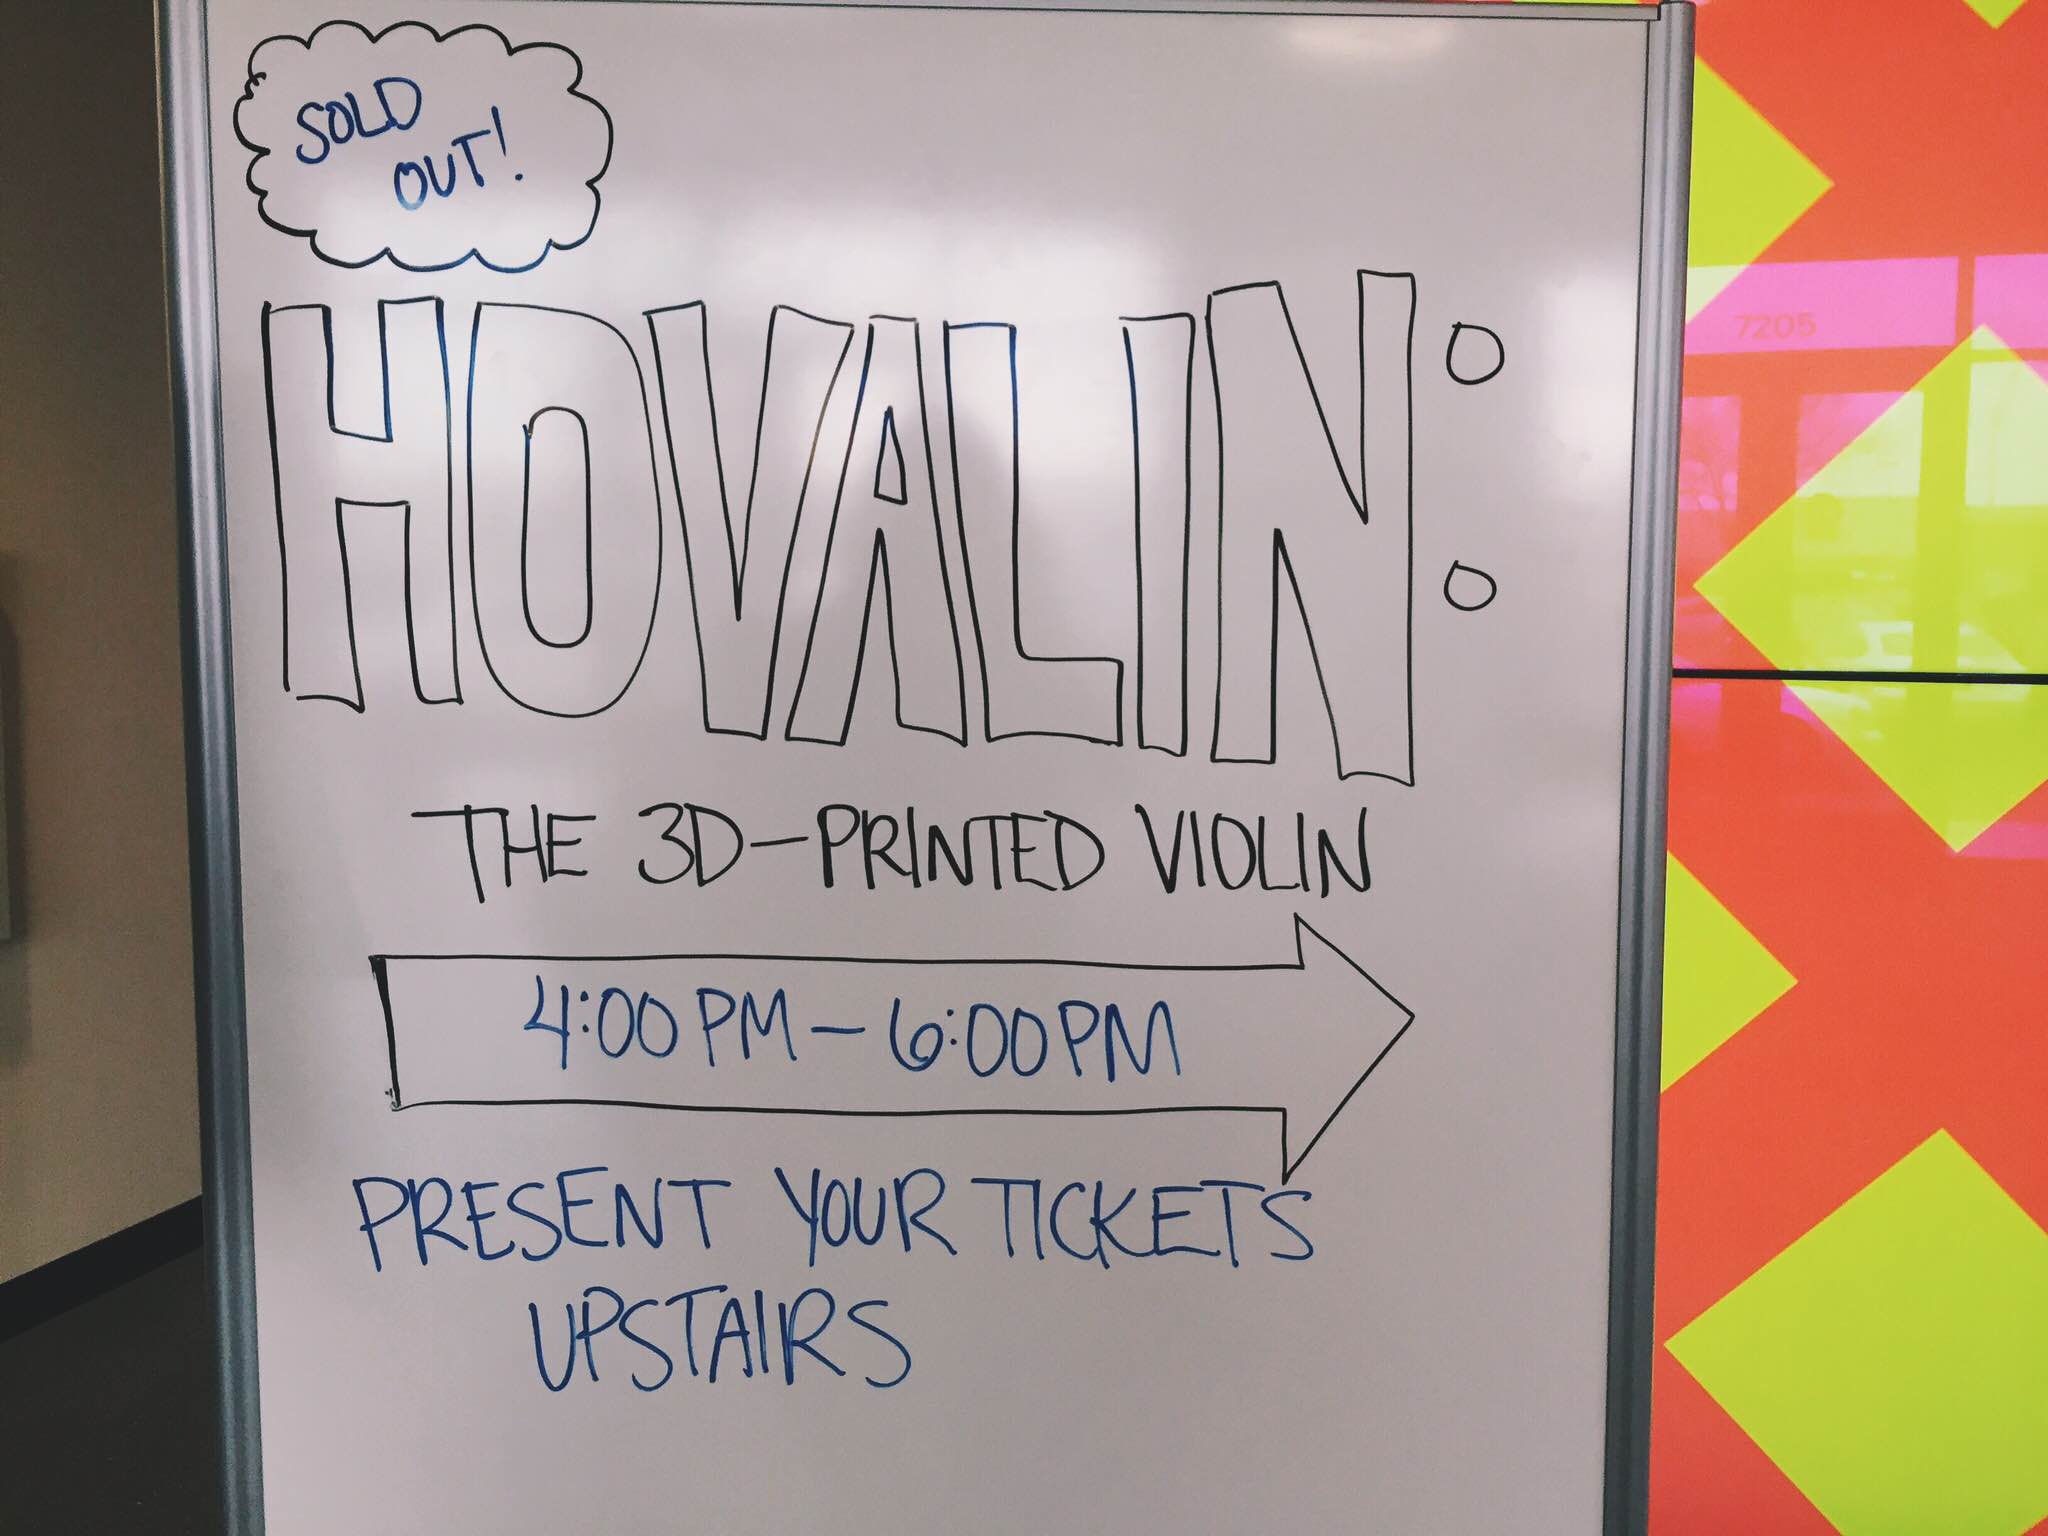 SOLD
OUT!
HOVALIN:
THE 3D-PRINTED VIOLIN
4:00 PM - 6:00PM
PRESENT YOUR TICKETS
UPSTAIRS
7205